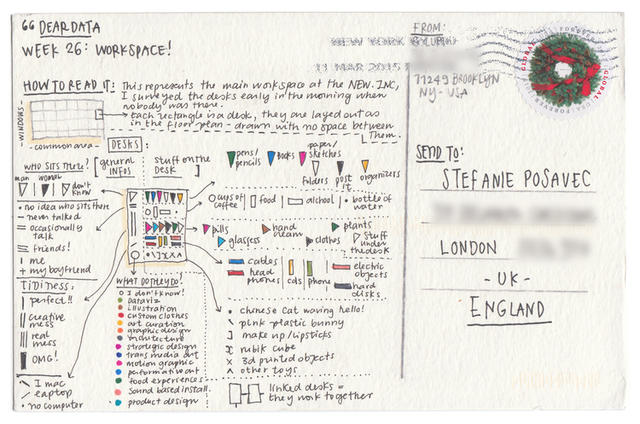 “ DEAR DATA
WEEK 26: WORKSPACE!
HOW TO READ IT: This represents the main workspace at the NEW.INC,
I surveyed the desks easily in the morning when
nobody was there.
each rectangle is a desk, they are layed out as
in the floor plan - drawn with no space between
them.
WINDOWS
common area
DESKS:
WHO SITS THERE?
man woman
don't know
• no idea who sits there
– never talked
= occasionally
talk
≡ friends!
| me
+ my boyfriend
TIDINESS:
perfect!!
creative
mess
real
mess
OMG!
\ I mac
/ laptop
• no computer
[general
infos
stuff on the
desk]
pens/
pencils
books
paper/
sketches
folders
post
it
organizers
cups of
coffee
food
alcohol
bottle of
water
pills
hand
cream
plants
glasses
clothes
stuff
under the
desk
cables
head
phones
cds
phone
electric
objects
hard
disks
• chinese cat waving hello!
\ pink plastic bunny
] make up/lipsticks
rubik cube
x 3d printed objects
^ other toys
WHAT DO THEY DO?
I don't know!
dataviz
illustration
custom clothes
art curation
graphic design
architecture
strategic design
trans media art
motion graphic
performative art
food experiences
sound based install.
product design
linked desks =
they work together
FROM:
NEW YORK
13 MAR 2015
11249 BROOKLYN
NY - USA
GLOBAL
FOREVER
SEND TO:
STEFANIE POSAVEC
LONDON
- UK -
ENGLAND